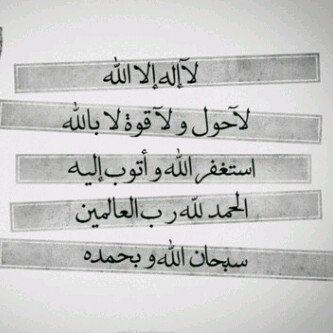 لآإله إلا الله
لآحول و لآقوة لا بالله
استغفر الله و أتوب إليه
الحمد لله رب العالمين
سبحان الله و بحمده